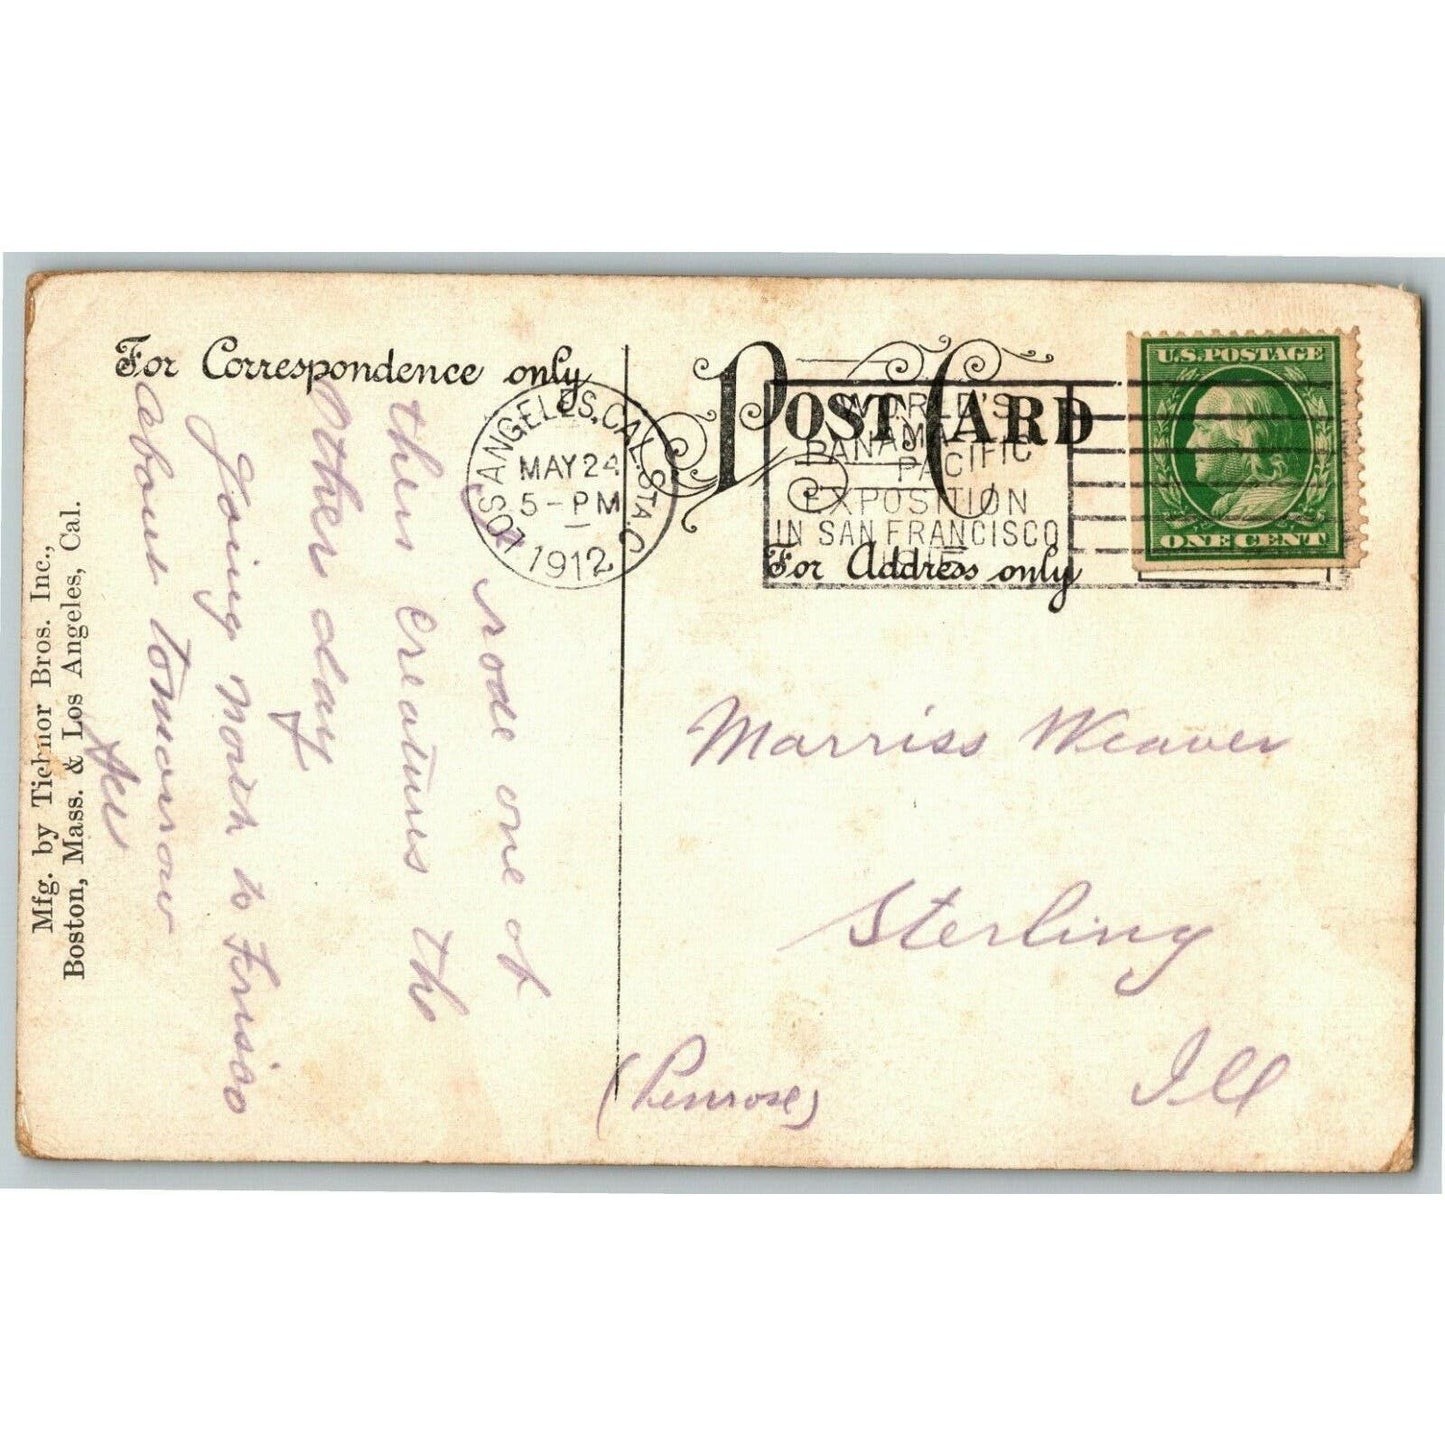 For Correspondence only
POST CARD
For Address only
LOS ANGELES, CAL. STA. C.
MAY 24
5-PM
1912
WORLD'S
PANAMA
PACIFIC
EXPOSITION
IN SAN FRANCISCO
U.S. POSTAGE
ONE CENT
rode one of
thes creatures the
other day
going north to Frisco
about tomorrow
Marriss Weaver
Sterling
Ill
(Penrose)
Mfg. by Tichnor Bros. Inc.,
Boston, Mass. & Los Angeles, Cal.